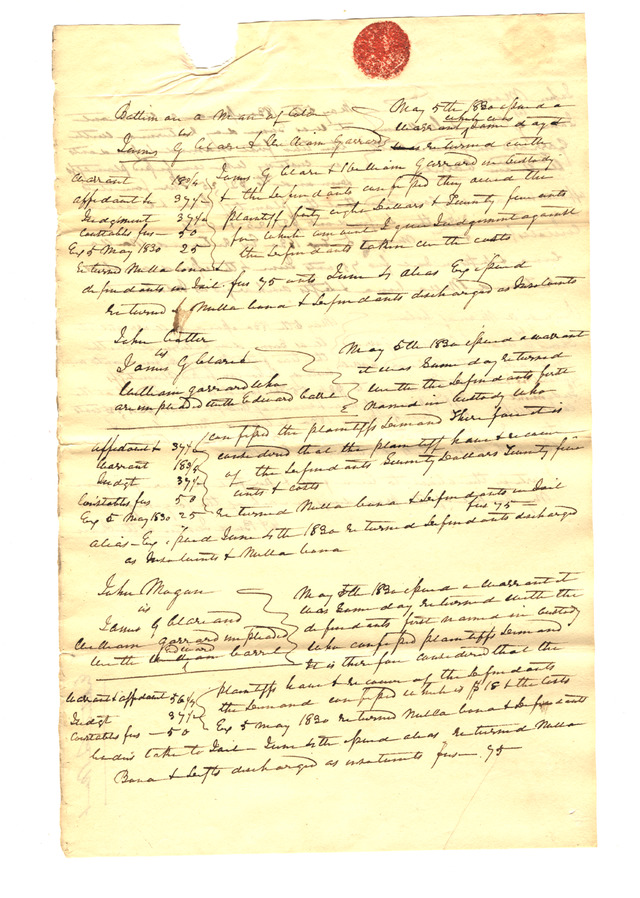 Battimon a Man of Color
vs
James G Clare & William Garrard
May 5th 1830 Issued a
Warrant which was Same day
returned with
James G Clare & William Garrard in Custody
& the Defendants confessed they owed the
plaintiff forty eight Dollars & Twenty five cents
for which amount I give Judgment against
the Defendants taken with the costs
Warrant 18 3/4
affidavit 37 1/2
Judgment 37 1/2
Constables fees - 50
Ex 5 May 1830 25
Returned Nulla bona &
defendants in Jail fees 75 cents June 4 alias Ex Issued
Returned Nulla bona & Defendants discharged as Insolvents
John Cotter
vs
James G Clare &
William Garrard who
are impleaded with Edward Carrel
May 5th 1830 Issued a warrant
it was Same day returned
with the Defendants first
named in Custody who
confessed the plaintiffs Demand Therefore it is
considered that the plaintiff have & recover
of the Defendants Seventy Dollars Twenty five
cents & costs
affidavit & 37 1/2
Warrant 18 3/4
Judgt 37 1/2
Constables fees 50
Ex 5 May 1830 25 Returned Nulla bona & Defendants in Jail
fees 75
alias - Ex Issued June 4th 1830 Returned Defendants discharged
as Insolvents & Nulla bona
John Mogan
vs
James G Clare and
William Garrard impleaded
with Edward Carrel
May 5th 1830 Issued a Warrant it
was Same day returned with the
defendants first named in Custody
Who confessed plaintiffs Demand
It is therefore considered that the
plaintiffs have & recover of the Defendants
the Demand confessed which is $18 & the Costs
Warrant & affidavit 56 1/4
Judgt 37 1/2
Constables fees - 50 Ex 5 May 1830 Returned Nulla bona & Defendants
bodies take to Jail - June 4th Issued alias Returned Nulla
Bona & Defts discharged as insolvents fees - 75